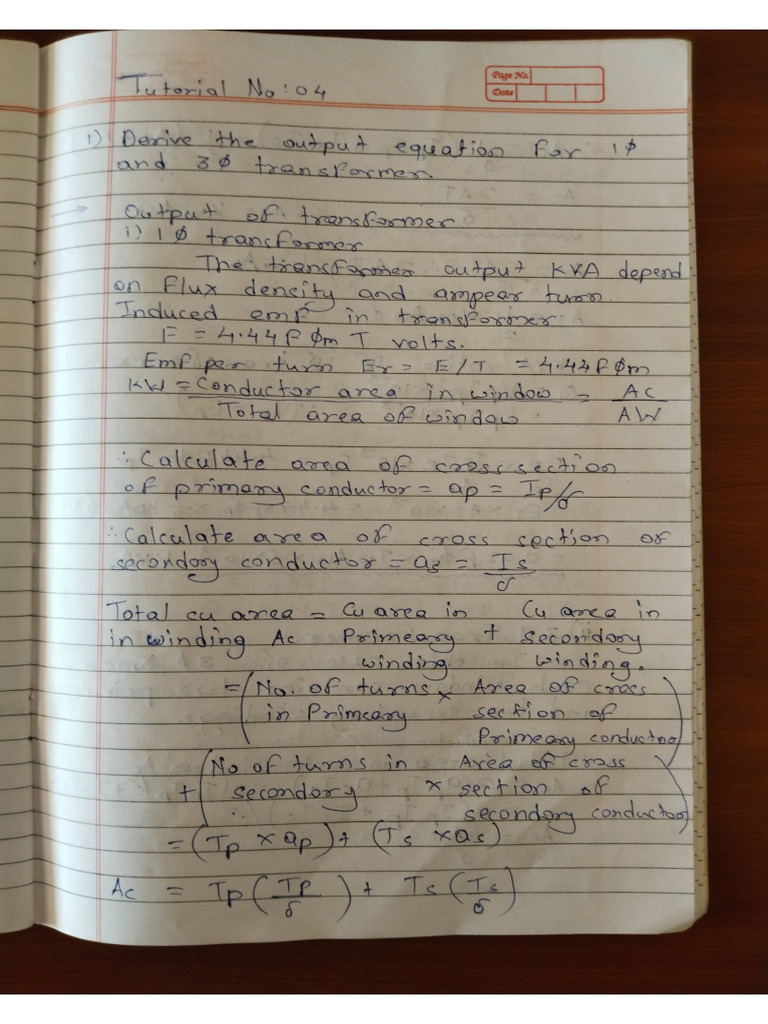 Page No.
Date
Tutorial No:04
1) Derive the output equation for 1ϕ
and 3ϕ transformer.
→ Output of transformer
i) 1ϕ transformer
The transformer output KVA depend
on flux density and ampear turn.
Induced emf in transformer
E = 4.44f ϕm T volts.
Emf per turn Er = E/T = 4.44f ϕm
KW = Conductor area in window / Total area of window = Ac / AW
∴ Calculate area of cross section
of primary conductor = ap = Ip/δ
∴ Calculate area of cross section of
secondory conductor = as = Is/δ
Total cu area = Cu area in Cu area in
in winding Ac Primeary + secondory
winding winding.
= (No. of turns × Area of cross
in Primeary section of
Primeary conductor)
+ (No of turns in Area of cross
secondory × section of
secondory conductor)
= (Tp × ap) + (Ts × as)
Ac = Tp (Ip/δ) + Ts (Is/δ)